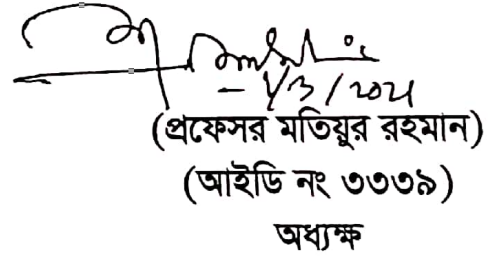 ১/৩/২০২১
(প্রফেসর মতিয়ুর রহমান)
(আইডি নং ৩৩৩৯)
অধ্যক্ষ